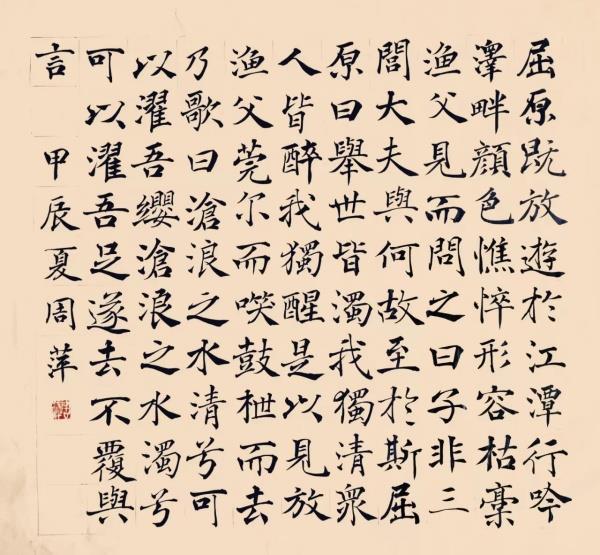 屈原既放遊於江潭行吟
澤畔顔色憔悴形容枯槀
漁父見而問之曰子非三
閭大夫與何故至於斯屈
原曰舉世皆濁我獨清衆
人皆醉我獨醒是以見放
漁父莞尔而㗛鼓枻而去
乃歌曰滄浪之水清兮可
以濯吾纓滄浪之水濁兮
可以濯吾足遂去不覆與
言 甲辰夏周萍